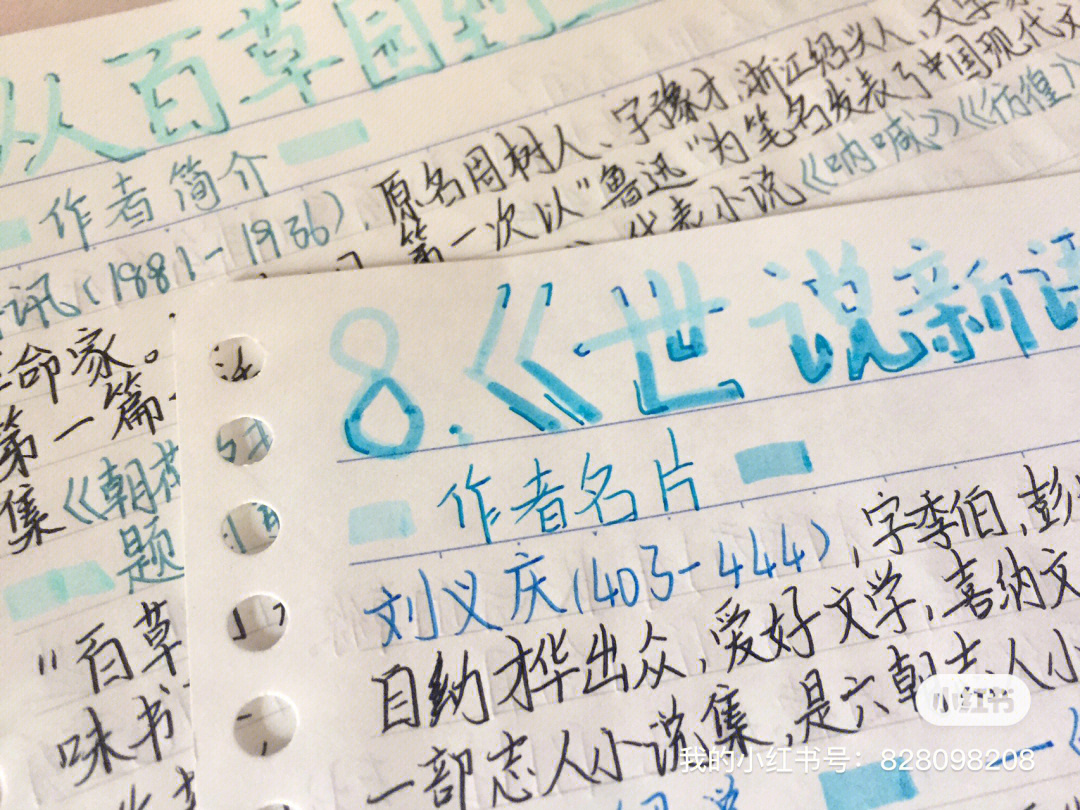 从百草园到
作者简介
鲁迅(1881-1936),原名周树人、字豫才,浙江绍兴人,文学家
第一次以"鲁迅"为笔名发表了中国现代文
代表小说《呐喊》《彷徨》
革命家。
第一篇
集《朝花
题
"百草
味书
8.《世说新语
作者名片
刘义庆(403-444),字季伯,彭
自幼才华出众,爱好文学,喜纳文
一部志人小说集,是六朝志人小
小红书
我的小红书号:828098208